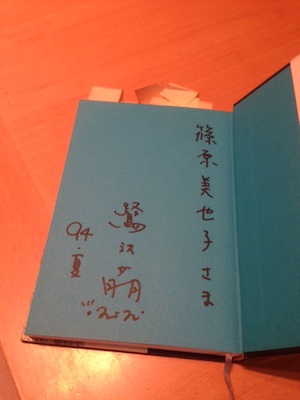 篠原美也子さま
鷺沢萠
94.夏